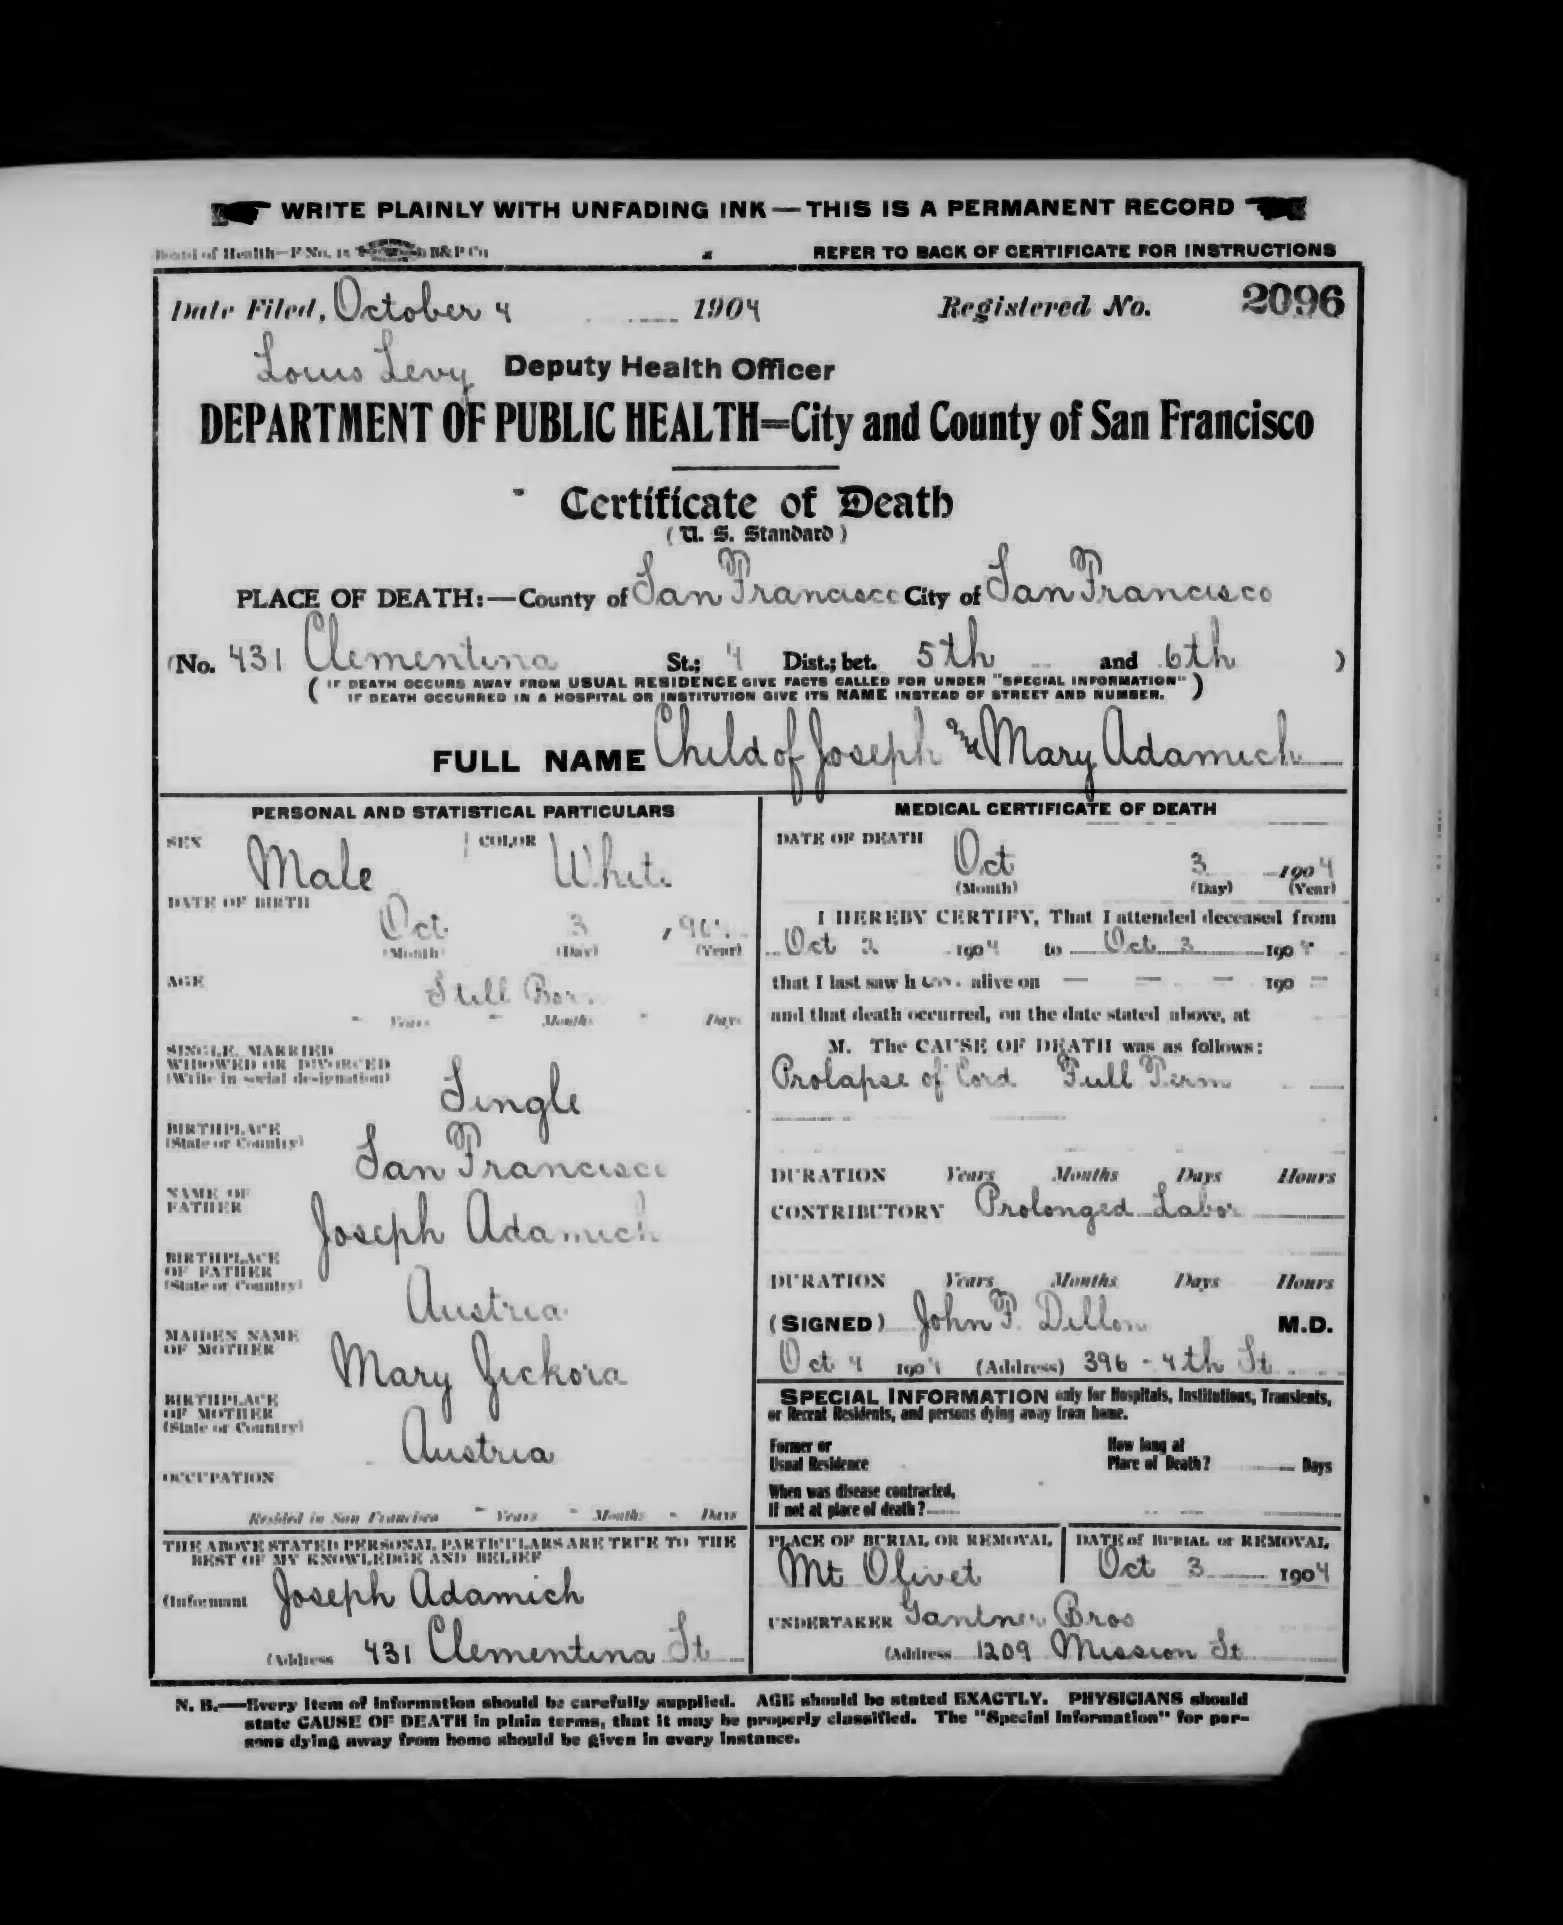 WRITE PLAINLY WITH UNFADING INK—THIS IS A PERMANENT RECORD
Board of Health—F No. 15 B&P Co REFER TO BACK OF CERTIFICATE FOR INSTRUCTIONS
Date Filed, October 4 1904 Registered No. 2096
Louis Levy Deputy Health Officer
DEPARTMENT OF PUBLIC HEALTH=City and County of San Francisco
Certificate of Death
(U. S. Standard)
PLACE OF DEATH:—County of San Francisco City of San Francisco
(No. 431 Clementina St.; 4 Dist.; bet. 5th and 6th )
( IF DEATH OCCURS AWAY FROM USUAL RESIDENCE GIVE FACTS CALLED FOR UNDER "SPECIAL INFORMATION" )
IF DEATH OCCURRED IN A HOSPITAL OR INSTITUTION GIVE ITS NAME INSTEAD OF STREET AND NUMBER.
FULL NAME Child of Joseph and Mary Adamich
PERSONAL AND STATISTICAL PARTICULARS
SEX Male COLOR White
DATE OF BIRTH
Oct 3 , 90
(Month) (Day) (Year)
AGE
Still Born
Years Months Days
SINGLE, MARRIED
WIDOWED OR DIVORCED
(Write in social designation)
Single
BIRTHPLACE
(State or Country)
San Francisco
NAME OF
FATHER
Joseph Adamich
BIRTHPLACE
OF FATHER
(State or Country)
Austria
MAIDEN NAME
OF MOTHER
Mary Zickora
BIRTHPLACE
OF MOTHER
(State or Country)
Austria
OCCUPATION
Resided in San Francisco - Years - Months - Days
THE ABOVE STATED PERSONAL PARTICULARS ARE TRUE TO THE
BEST OF MY KNOWLEDGE AND BELIEF
(Informant Joseph Adamich
(Address 431 Clementina St
MEDICAL CERTIFICATE OF DEATH
DATE OF DEATH
Oct 3 1904
(Month) (Day) (Year)
I HEREBY CERTIFY, That I attended deceased from
Oct 2 1904 to Oct 3 1904
that I last saw h alive on — — — 190 —
and that death occurred, on the date stated above, at
M. The CAUSE OF DEATH was as follows:
Prolapse of Cord Full Term
DURATION Years Months Days Hours
CONTRIBUTORY Prolonged Labor
DURATION Years Months Days Hours
(SIGNED) John F. Dillon M.D.
Oct 4 1904 (Address) 396 - 4th St
SPECIAL INFORMATION only for Hospitals, Institutions, Transients,
or Recent Residents, and persons dying away from home.
Former or
Usual Residence
How long at
Place of Death? Days
When was disease contracted,
If not at place of death?
PLACE OF BURIAL OR REMOVAL
Mt Olivet
DATE of BURIAL or REMOVAL
Oct 3 1904
UNDERTAKER Gantner Bros
(Address 1209 Mission St
N. B.—Every item of information should be carefully supplied. AGE should be stated EXACTLY. PHYSICIANS should
state CAUSE OF DEATH in plain terms, that it may be properly classified. The "Special Information" for per-
sons dying away from home should be given in every instance.